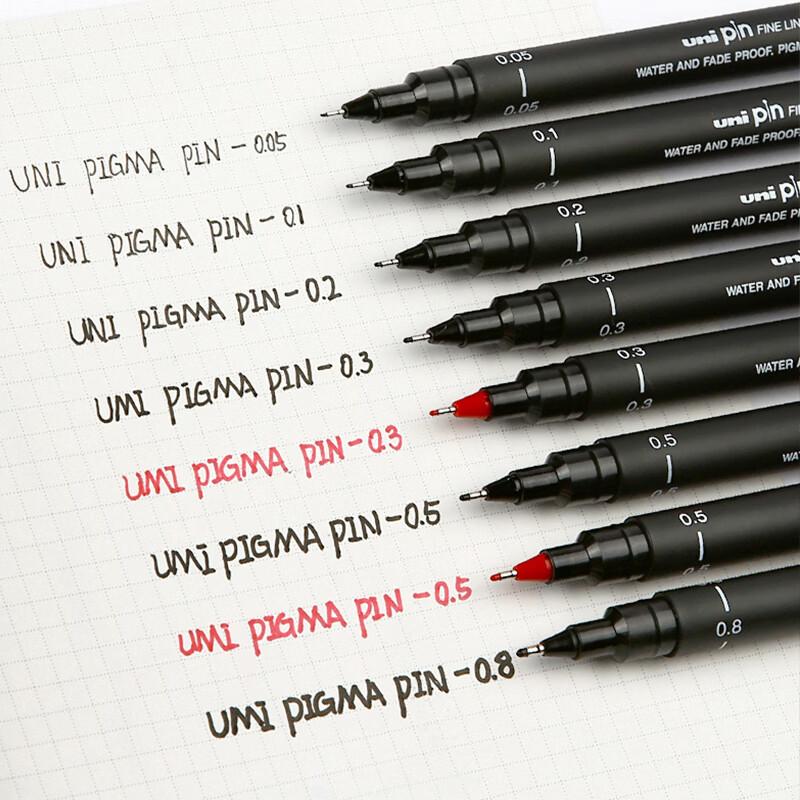 uni pin FINE LIN
WATER AND FADE PROOF, PIGM
0.05
0.05
UNI PIGMA PIN - 0.05
uni pin FI
WATER AND FADE PROOF
0.1
0.1
UNI PIGMA PIN - 0.1
uni pi
WATER AND FADE P
0.2
0.2
UNI PIGMA PIN - 0.2
uni
WATER AND F
0.3
0.3
UMI PIGMA PIN - 0.3
WATER A
0.3
0.3
UMI PIGMA PIN - 0.3
WA
0.5
0.5
UMI PIGMA PIN - 0.5
0.5
0.5
UMI PIGMA PIN - 0.5
0.8
UMI PIGMA PIN - 0.8